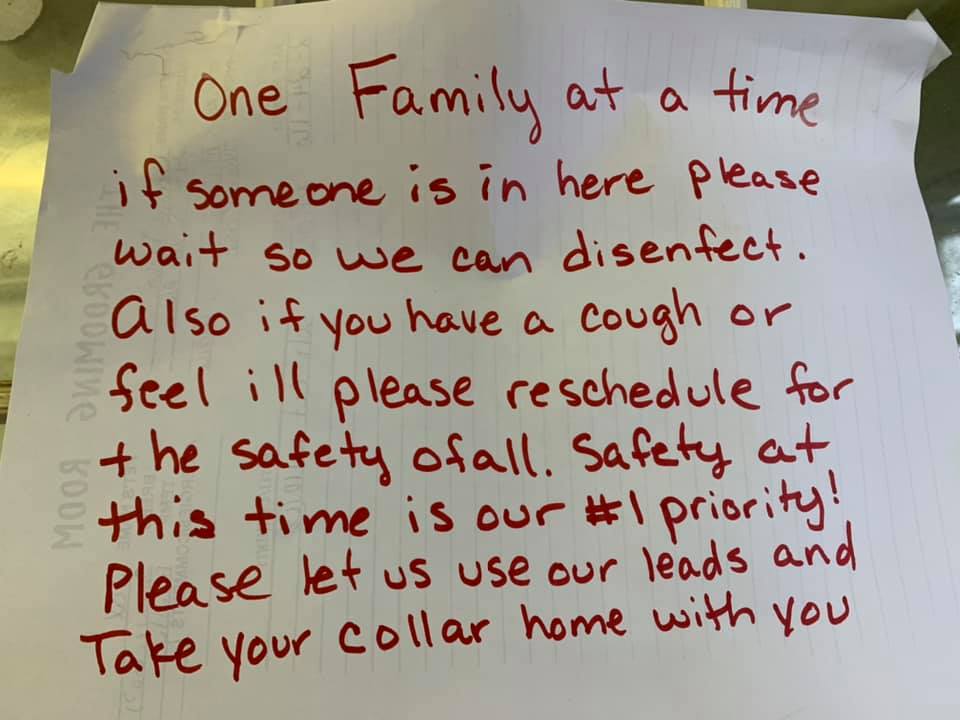 One Family at a time
if someone is in here please
wait so we can disenfect.
Also if you have a cough or
feel ill please reschedule for
the safety of all. Safety at
this time is our #1 priority!
Please let us use our leads and
Take your collar home with you
THE GROOMING ROOM